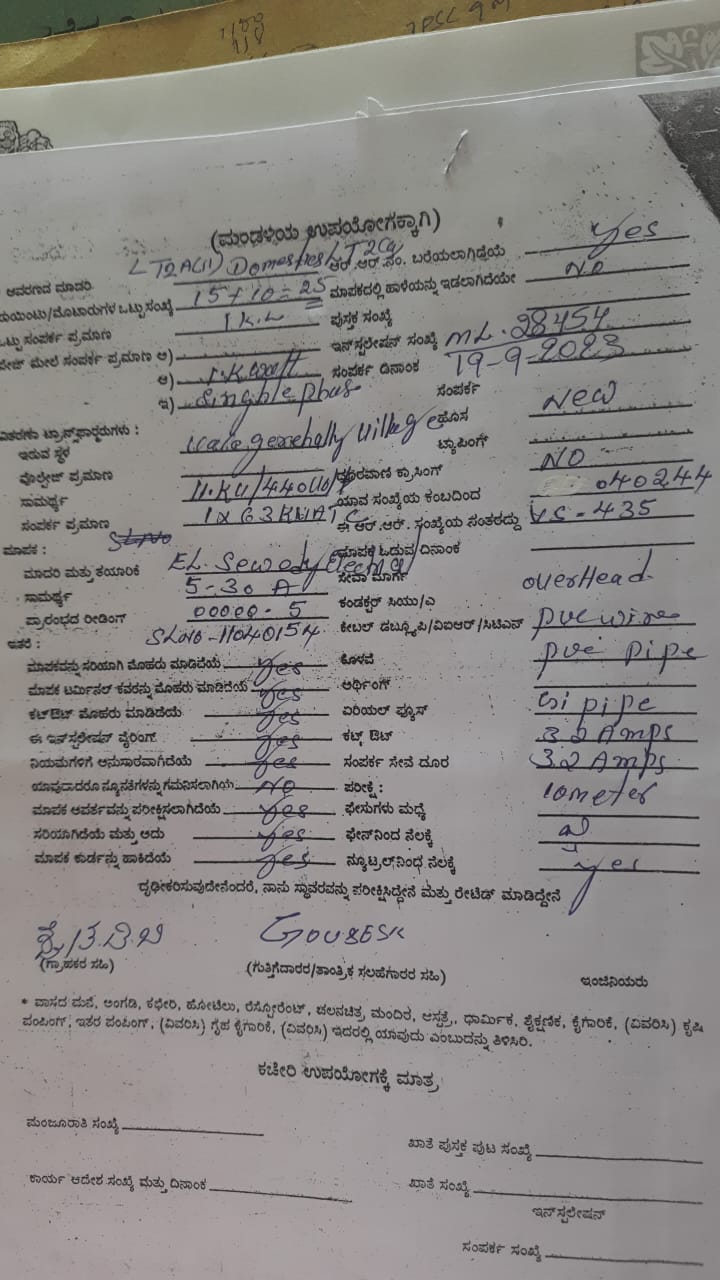 (ಮಂಡಳಿಯ ಉಪಯೋಗಕ್ಕಾಗಿ)
ಆವರಣದ ಮಾದರಿ LT2A(ii) Domestic ಆರ್.ಆರ್.ನಂ. ಬರೆಯಲಾಗಿದೆಯೆ Yes
ಪಾಯಿಂಟು/ಮೊಟಾರುಗಳ ಒಟ್ಟು ಸಂಖ್ಯೆ 15+10=25 ಮಾಪಕದಲ್ಲಿ ಹಾಳೆಯನ್ನು ಇಡಲಾಗಿದೆಯೇ NO
ಒಟ್ಟು ಸಂಪರ್ಕ ಪ್ರಮಾಣ 1K.W ಪುಸ್ತಕ ಸಂಖ್ಯೆ
ಮೇಲೆ ಸಂಪರ್ಕ ಪ್ರಮಾಣ ಅ) ಇನ್‌ಸ್ಟಲೇಷನ್ ಸಂಖ್ಯೆ ML.28454
ಆ) 1.KWatt ಸಂಪರ್ಕ ದಿನಾಂಕ 19-9-2023
ಇ) Singhle phas ಸಂಪರ್ಕ
ವಿತರಣಾ ಟ್ರಾನ್ಸ್‌ಫಾರ್ಮರುಗಳು : ಹೊಸ New
ಇರುವ ಸ್ಥಳ village ಟ್ಯಾಪಿಂಗ್
ವೋಲ್ಟೇಜ್ ಪ್ರಮಾಣ 11.KV/440V ದೂರವಾಣಿ ಕ್ರಾಸಿಂಗ್ NO
ಸಾಮರ್ಥ್ಯ 1X63KVA TC ಯಾವ ಸಂಖ್ಯೆಯ ಕಂಬದಿಂದ 040244
ಸಂಪರ್ಕ ಪ್ರಮಾಣ ಈ ಆರ್.ಆರ್. ಸಂಖ್ಯೆಯ ನಂತರದ್ದು VS-435
ಮಾಪಕ : ಮಾಪಕ ಓದುವ ದಿನಾಂಕ
ಮಾದರಿ ಮತ್ತು ತಯಾರಿಕೆ EL. Sewedy Electric ಸೇವಾ ಮಾರ್ಗ overHead
ಸಾಮರ್ಥ್ಯ 5-30 A ಕಂಡಕ್ಟರ್ ಸಿಯು/ಎ
ಪ್ರಾರಂಭದ ರೀಡಿಂಗ್ 00000-5 ಕೇಬಲ್ ಡಬ್ಲ್ಯೂಪಿ/ವಿಐಆರ್/ಸಿಟಿಎಸ್ pvc wire
ಇತರೆ : SLNO-11040154
ಮಾಪಕವನ್ನು ಸರಿಯಾಗಿ ಮೊಹರು ಮಾಡಿದೆಯೆ Yes ಕೊಳವೆ pvc pipe
ಮಾಪಕ ಟರ್ಮಿನಲ್ ಕವರನ್ನು ಮೊಹರು ಮಾಡಿದೆಯೆ Yes ಆರ್ಥಿಂಗ್ Gi pipe
ಕಟ್‌ಔಟ್ ಮೊಹರು ಮಾಡಿದೆಯೆ Yes ಏರಿಯಲ್ ಫ್ಯೂಸ್ 32Amps
ಈ ಇನ್‌ಸ್ಟಲೇಷನ್ ವೈರಿಂಗ್ Yes ಕಟ್ಔಟ್ 32 Amps
ನಿಯಮಗಳಿಗೆ ಅನುಸಾರವಾಗಿದೆಯೆ Yes ಸಂಪರ್ಕ ಸೇವೆ ದೂರ 10meter
ಯಾವುದಾದರೂ ನ್ಯೂನತೆಗಳನ್ನು ಗಮನಿಸಲಾಗಿಯೆ NO ಪರೀಕ್ಷೆ :
ಮಾಪಕ ಆವರ್ತವನ್ನು ಪರೀಕ್ಷಿಸಲಾಗಿದೆಯೆ Yes ಫೇಸುಗಳು ಮಧ್ಯೆ
ಸರಿಯಾಗಿದೆಯೆ ಮತ್ತು ಅದು Yes ಫೇಸ್‌ನಿಂದ ನೆಲಕ್ಕೆ
ಮಾಪಕ ಕಾರ್ಡನ್ನು ಹಾಕಿದೆಯೆ Yes ನ್ಯೂಟ್ರಲ್‌ನಿಂದ ನೆಲಕ್ಕೆ Yes
ದೃಢೀಕರಿಸುವುದೇನೆಂದರೆ, ನಾನು ಸ್ಥಾವರವನ್ನು ಪರೀಕ್ಷಿಸಿದ್ದೇನೆ ಮತ್ತು ರೇಟಿಡ್ ಮಾಡಿದ್ದೇನೆ
(ಗ್ರಾಹಕರ ಸಹಿ) (ಗುತ್ತಿಗೆದಾರರ/ತಾಂತ್ರಿಕ ಸಲಹೆಗಾರರ ಸಹಿ) ಇಂಜಿನಿಯರು
* ವಾಸದ ಮನೆ, ಅಂಗಡಿ, ಕಛೇರಿ, ಹೋಟೆಲು, ರೆಸ್ಟೋರೆಂಟ್, ಚಲನಚಿತ್ರ ಮಂದಿರ, ಆಸ್ಪತ್ರೆ, ಧಾರ್ಮಿಕ, ಶೈಕ್ಷಣಿಕ, ಕೈಗಾರಿಕೆ, (ವಿವರಿಸಿ) ಕೃಷಿ
ಪಂಪಿಂಗ್, ಇತರ ಪಂಪಿಂಗ್, (ವಿವರಿಸಿ) ಗೃಹ ಕೈಗಾರಿಕೆ, (ವಿವರಿಸಿ) ಇದರಲ್ಲಿ ಯಾವುದು ಎಂಬುದನ್ನು ತಿಳಿಸಿರಿ.
ಕಚೇರಿ ಉಪಯೋಗಕ್ಕೆ ಮಾತ್ರ
ಮಂಜೂರಾತಿ ಸಂಖ್ಯೆ
ಖಾತೆ ಪುಸ್ತಕ ಪುಟ ಸಂಖ್ಯೆ
ಕಾರ್ಯ ಆದೇಶ ಸಂಖ್ಯೆ ಮತ್ತು ದಿನಾಂಕ ಖಾತೆ ಸಂಖ್ಯೆ
ಇನ್‌ಸ್ಟಲೇಷನ್
ಸಂಪರ್ಕ ಸಂಖ್ಯೆ